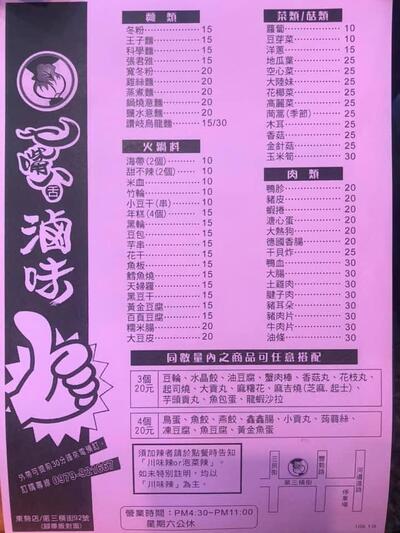 七嘴八舌
滷味
外帶可提前30分鐘來電預訂。
東勢店/第三橫街92號
麵類
冬粉 15
王子麵 15
科學麵 15
張君雅 15
寬冬粉 20
雞絲麵 20
蒸煮麵 20
鍋燒意麵 20
鹽水意麵 20
讚岐烏龍麵 15/30
火鍋料
海帶(2個) 10
甜不辣(2個) 10
米血 10
竹輪 10
小豆干(串) 10
年糕(4個) 15
黑輪 15
豆包 15
芋串 15
花干 15
魚板 15
鱈魚燒 15
天婦羅 15
黑豆干 15
黃金豆腐 15
百頁豆腐 15
糯米腸 20
大豆皮 20
菜類/菇類
蘿蔔 10
豆芽菜 10
洋蔥 15
地瓜葉 25
空心菜 25
大陸妹 25
花椰菜 25
高麗菜 25
茼蒿(季節) 25
木耳 25
香菇 25
金針菇 25
玉米筍 30
肉類
鴨胗 20
豬皮 20
蝦捲 20
溏心蛋 20
大熱狗 20
德國香腸 20
干貝炸 25
鴨血 30
大腸 30
土雞肉 30
腱子肉 30
豬耳朵 30
豬肉片 30
牛肉片 30
油條 30
同數量內之商品可任意搭配
3個20元
豆輪、水晶餃、油豆腐、蟹肉棒、香菇丸、花枝丸、
起司燒、大貢丸、麻糬花、麻吉燒(芝麻.起士)、
芋頭貢丸、魚包蛋、龍蝦沙拉
4個20元
鳥蛋、魚餃、燕餃、鑫鑫腸、小貢丸、蒟蒻絲、
凍豆腐、魚豆腐、黃金魚蛋
須加辣者請於點餐時告知
「川味辣or泡菜辣」。
如未特別註明，均以
「川味辣」為主。
營業時間：PM4:30~PM11:00
星期六公休
第三橫街
豐勢路
停車場